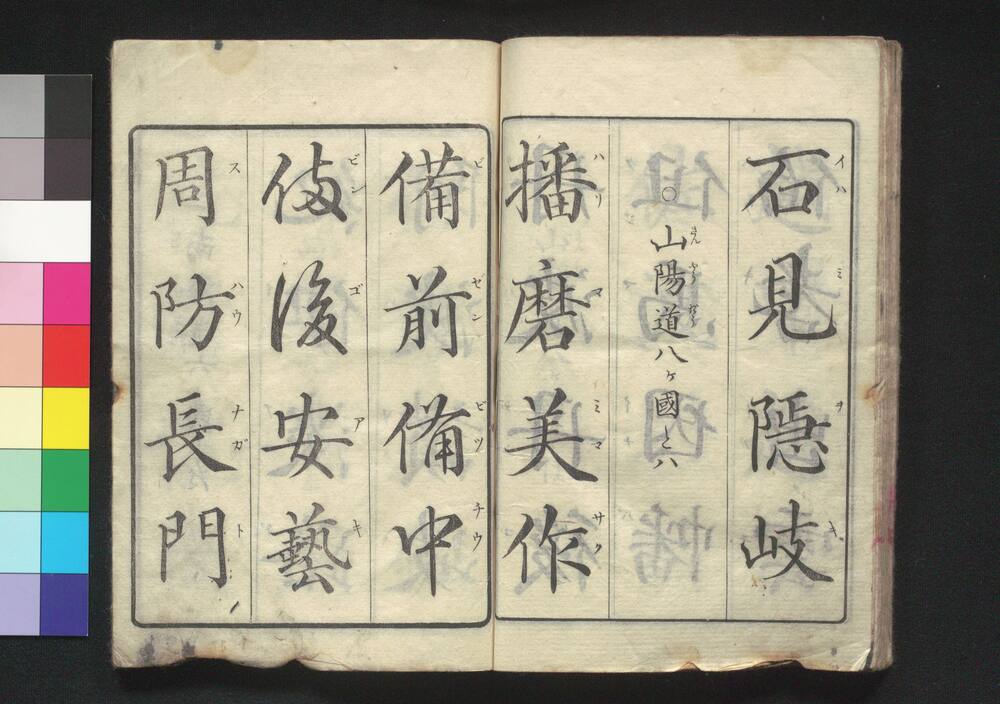 石見隠岐
○山陽道八ヶ國とハ
播磨美作
備前備中
備後安藝
周防長門